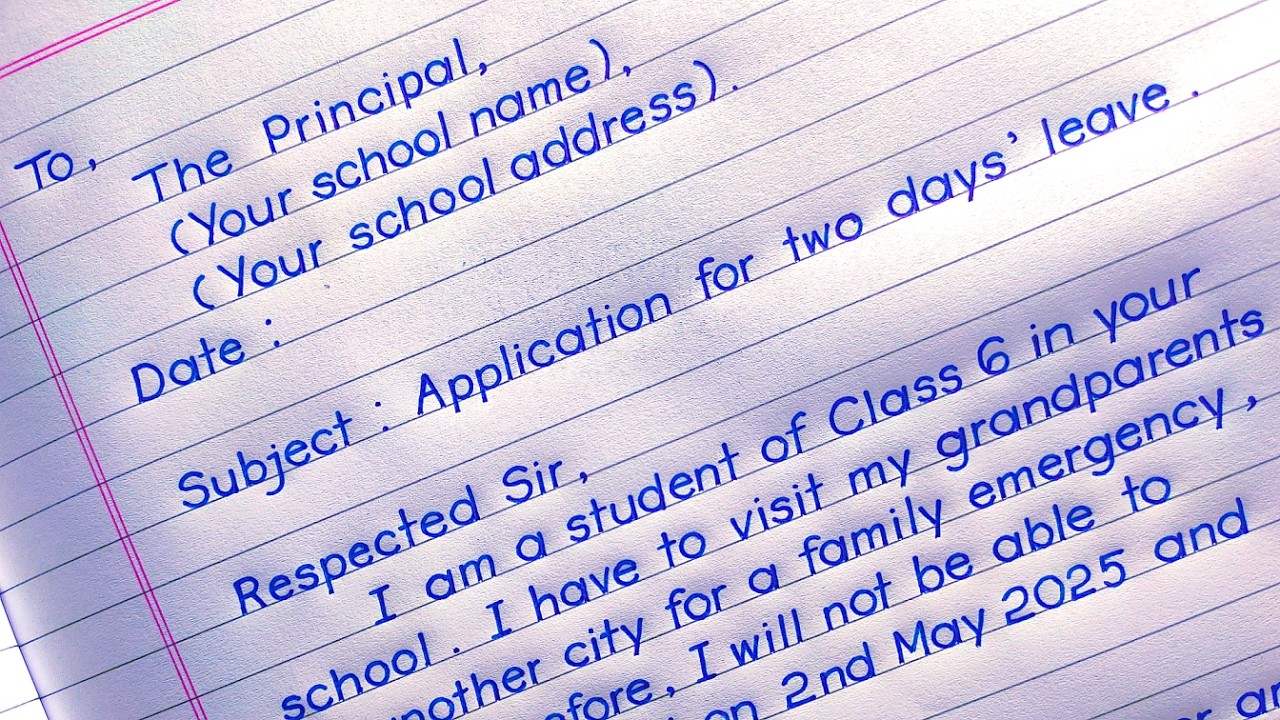 To,
The Principal,
(Your school name),
(Your school address).
Date :
Subject : Application for two days' leave.
Respected Sir,
I am a student of Class 6 in your
school. I have to visit my grandparents
city for a family emergency,
I will not be able to
on 2nd May 2025 and